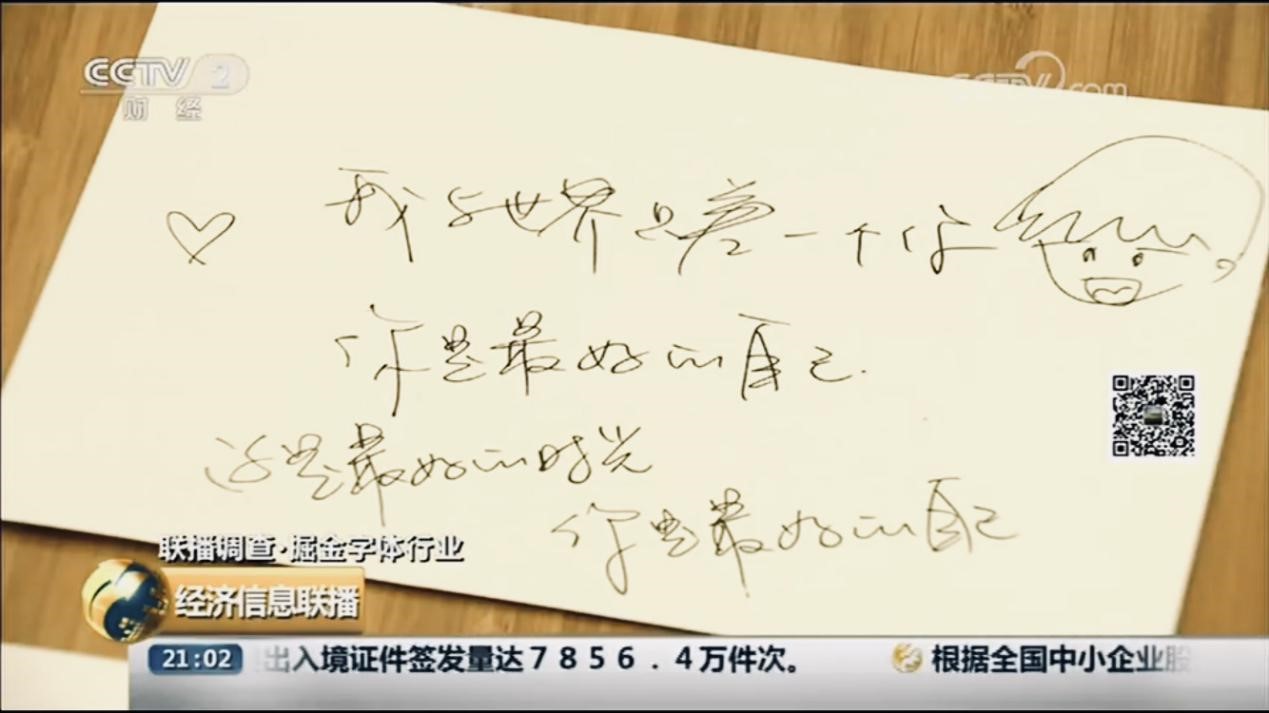 CCTV 2
财经
CCTV.com
我与世界只差一个你
你是最好的自己
这是最好的时光
你是最好的自己
联播调查·掘金字体行业
经济信息联播
21:02 出入境证件签发量达7856.4万件次。 根据全国中小企业股